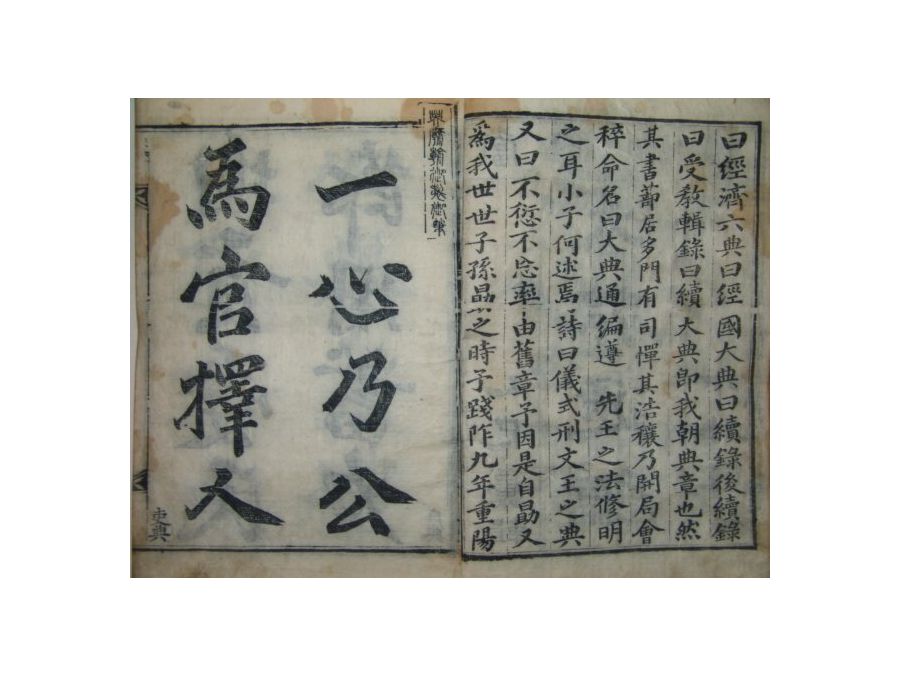 曰經濟六典曰經國大典曰續錄後續錄
曰受敎輯錄曰續大典卽我朝典章也然
其書蔀居多門有司憚其浩穰乃開局會
稡命名曰大典通編遵先王之法修明
之耳小子何述焉詩曰儀式刑文王之典
又曰不愆不忘率由舊章予因是自勗又
爲我世世子孫勗之時予踐阼九年重陽
一心乃公
爲官擇人
吏典